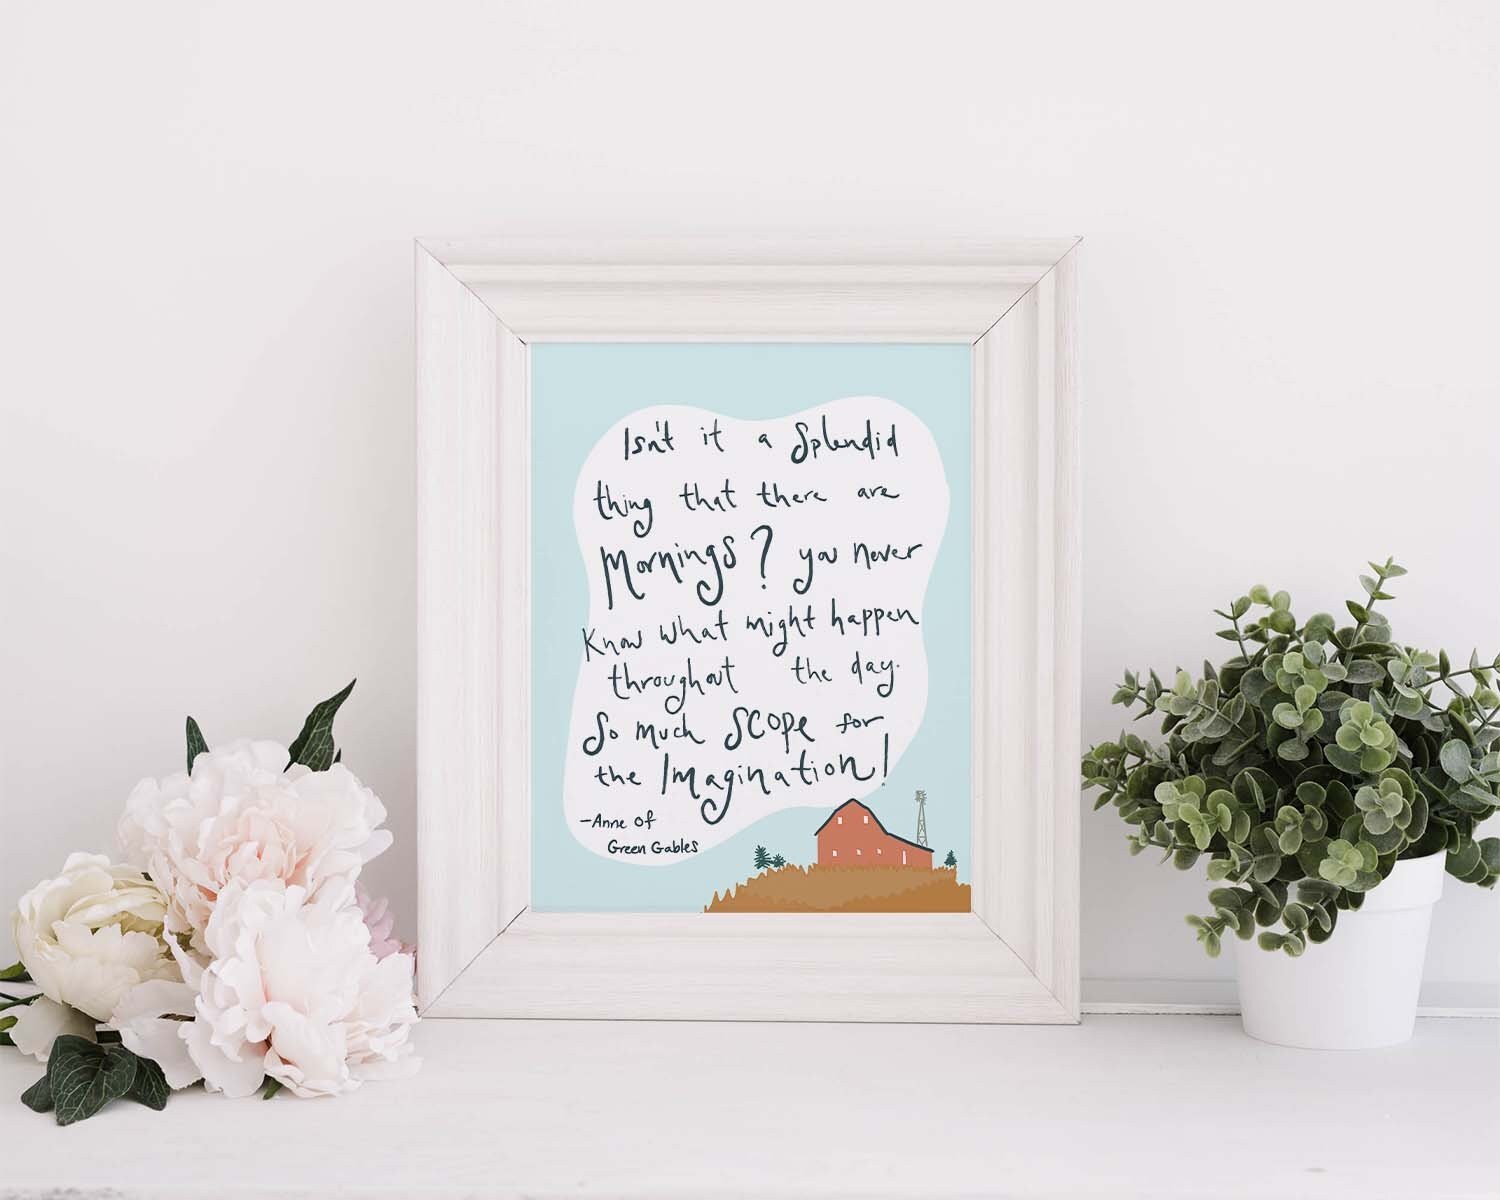 Isn't it a Splendid
thing that there are
Mornings? you never
Know what might happen
throughout the day.
So much SCOPE for
the Imagination!
-Anne of
Green Gables